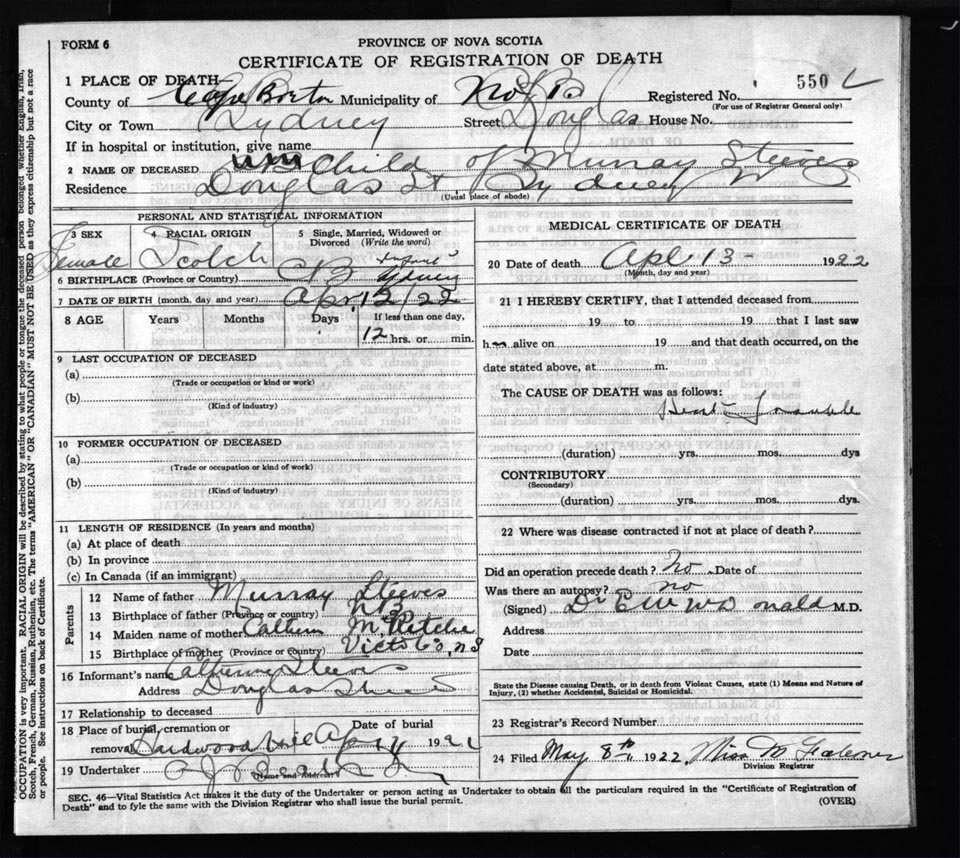 FORM 6
PROVINCE OF NOVA SCOTIA
CERTIFICATE OF REGISTRATION OF DEATH
1 PLACE OF DEATH
550
County of Cape Breton Municipality of No Registered No.
(For use of Registrar General only)
City or Town Sydney Street Douglas House No.
If in hospital or institution, give name
2 NAME OF DECEASED Child of Murray Steeves
Residence Douglas St. Sydney
(Usual place of abode)
PERSONAL AND STATISTICAL INFORMATION
3 SEX 4 RACIAL ORIGIN 5 Single, Married, Widowed or Divorced (Write the word)
Female Scotch
6 BIRTHPLACE (Province or Country) CB Sydney
7 DATE OF BIRTH (month, day and year) Apr. 12/22
8 AGE Years Months Days If less than one day,
12 hrs. or min.
9 LAST OCCUPATION OF DECEASED
(a)
(Trade or occupation or kind of work)
(b)
(Kind of industry)
10 FORMER OCCUPATION OF DECEASED
(a)
(Trade or occupation or kind of work)
(b)
(Kind of industry)
11 LENGTH OF RESIDENCE (In years and months)
(a) At place of death
(b) In province
(c) In Canada (if an immigrant)
Parents
12 Name of father Murray Steeves
13 Birthplace of father (Province or country) N.B.
14 Maiden name of mother McRitchie
15 Birthplace of mother (Province or Country) Vict. Co, N.S
16 Informant's name Catherine Steeves
Address Douglas Street
17 Relationship to deceased
18 Place of burial, cremation or removal Hardwood Hill Date of burial Apr 14 192
19 Undertaker
(Name and Address)
MEDICAL CERTIFICATE OF DEATH
20 Date of death Apl. 13 - 1922
(Month, day and year)
21 I HEREBY CERTIFY, that I attended deceased from
19 to 19 that I last saw
h alive on 19 and that death occurred, on the
date stated above, at m.
The CAUSE OF DEATH was as follows:
Heart
(duration) yrs. mos. dys
CONTRIBUTORY
(Secondary)
(duration) yrs. mos. dys.
22 Where was disease contracted if not at place of death?
Did an operation precede death? No Date of
Was there an autopsy? no
(Signed) Dr M.D.
Address
Date
State the Disease causing Death, or in death from Violent Causes, state (1) Means and Nature of Injury, (2) whether Accidental, Suicidal or Homicidal.
23 Registrar's Record Number
24 Filed May 8th 1922 Miss M
Division Registrar
SEC. 46—Vital Statistics Act makes it the duty of the Undertaker or person acting as Undertaker to obtain all the particulars required in the "Certificate of Registration of
Death" and to fyle the same with the Division Registrar who shall issue the burial permit.
(OVER)
OCCUPATION is very important. RACIAL ORIGIN will be described by stating to what people or tongue the deceased person belonged whether English, Irish,
Scotch, French, German, Russian, Ruthenian, etc. The terms "AMERICAN" OR "CANADIAN" MUST NOT BE USED as they express citizenship but not a race
or people. See instructions on back of Certificate.